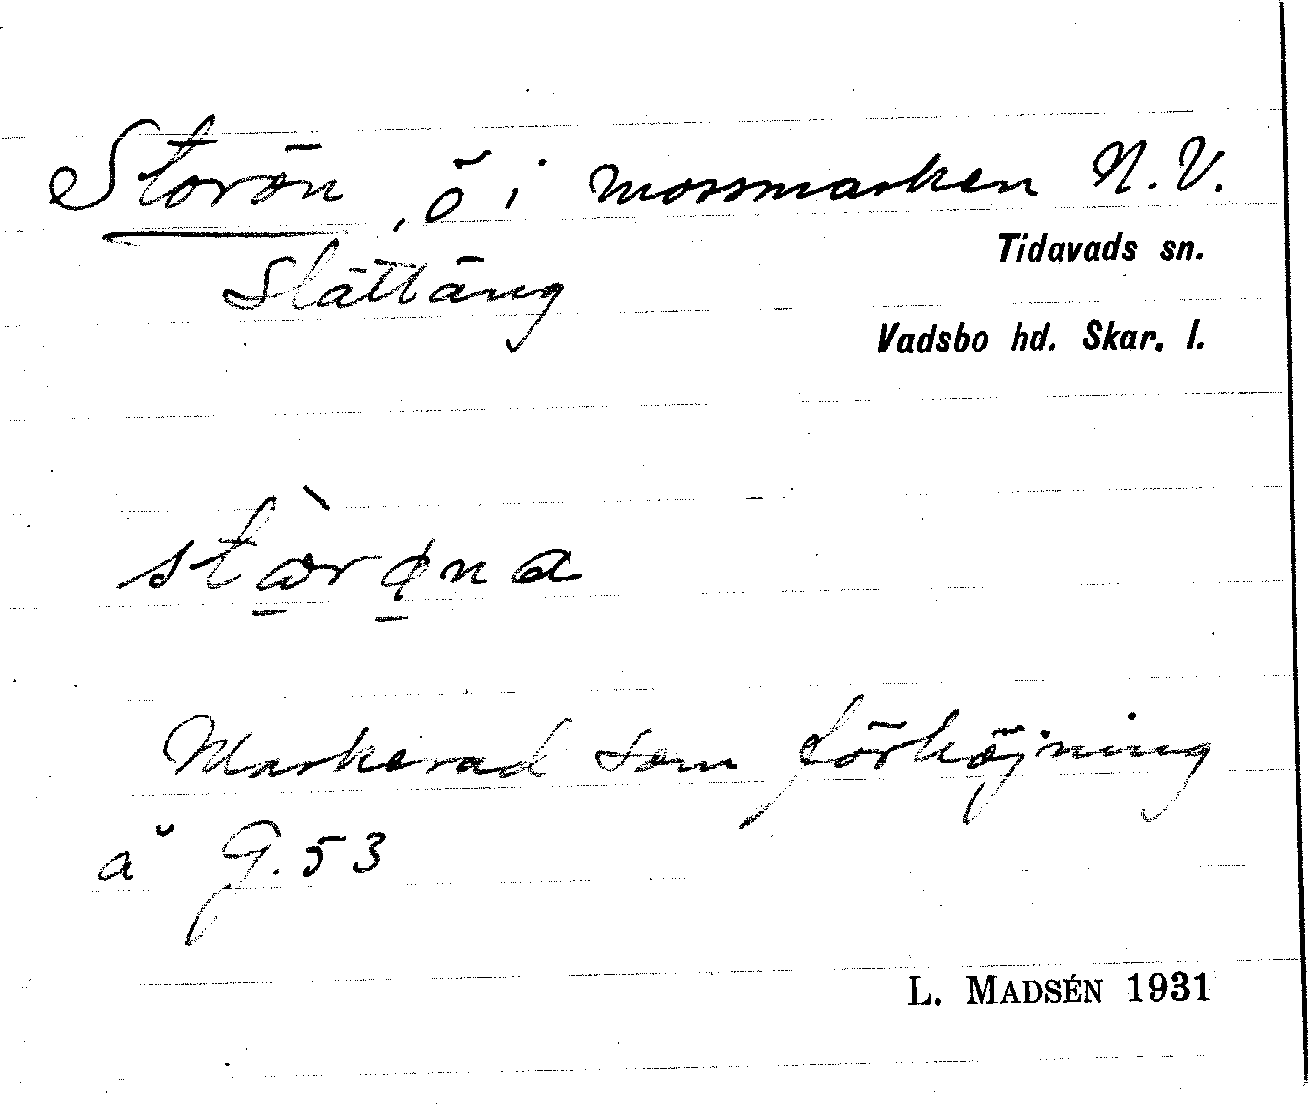 Storön, ö i mossmarken N.V.
Tidavads sn.
Slättäng
Vadsbo hd. Skar. l.
Markerad som förhöjning
å G. 53
L. MADSÉN 1931